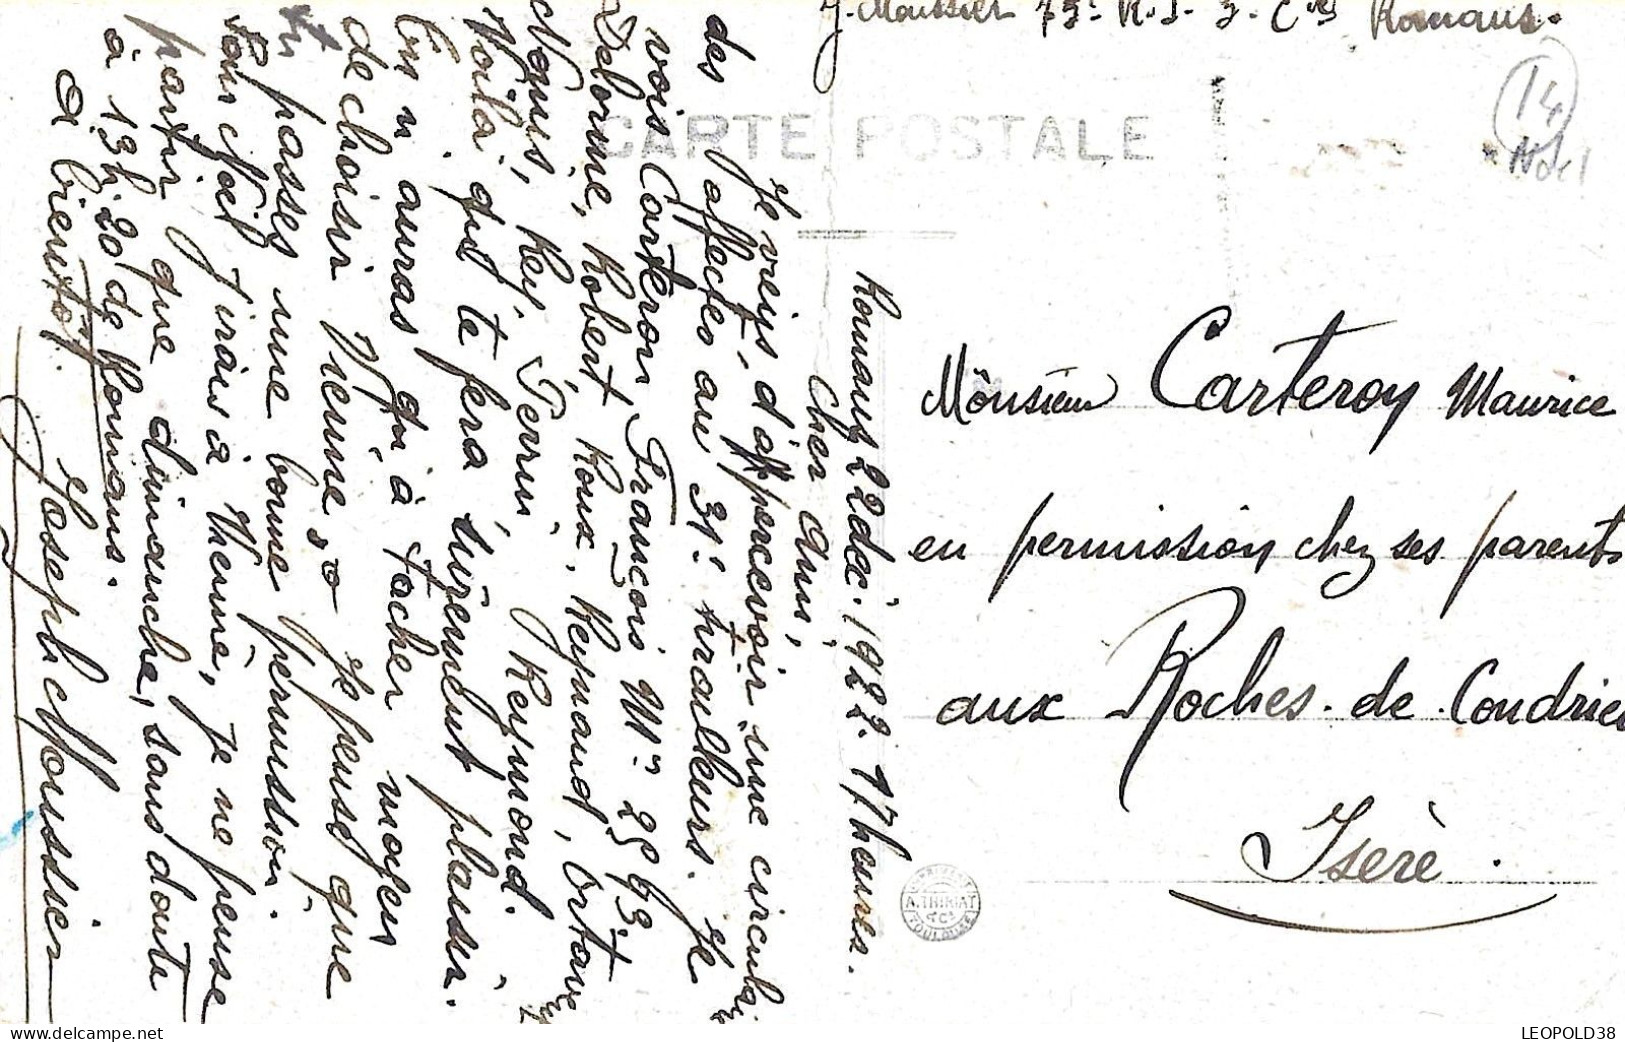 J. Moussier 75e R.I. 3e Cie Romans.
14
CARTE POSTALE
Romans 22 déc. 1922. 17 heures.
Cher ami,
Je viens d'appercevoir une circulaire
des affectés au 31e tirailleurs. Je
vois Carteron, François Mle 2563. et
Delorme, Robert, Roux, Reymond, Octave
Noyris, Rey, Perrin, Reymond.
Voilà qui te fera sûrement plaisir.
Tu n'auras qu'à tacher moyen
de choisir Vienne. Je pense que
tu passes une bonne permission.
Pour Noël j'irais à Vienne, je ne pense
partir que dimanche, sans doute
à 13h.20 de Romans.
A bientôt. Joseph Moussier
Monsieur Carteron Maurice
en permission chez ses parents
aux Roches-de-Condrieu
Isère.
A. THIRIAT
& Cie
TOULOUSE
www.delcampe.net
LEOPOLD38